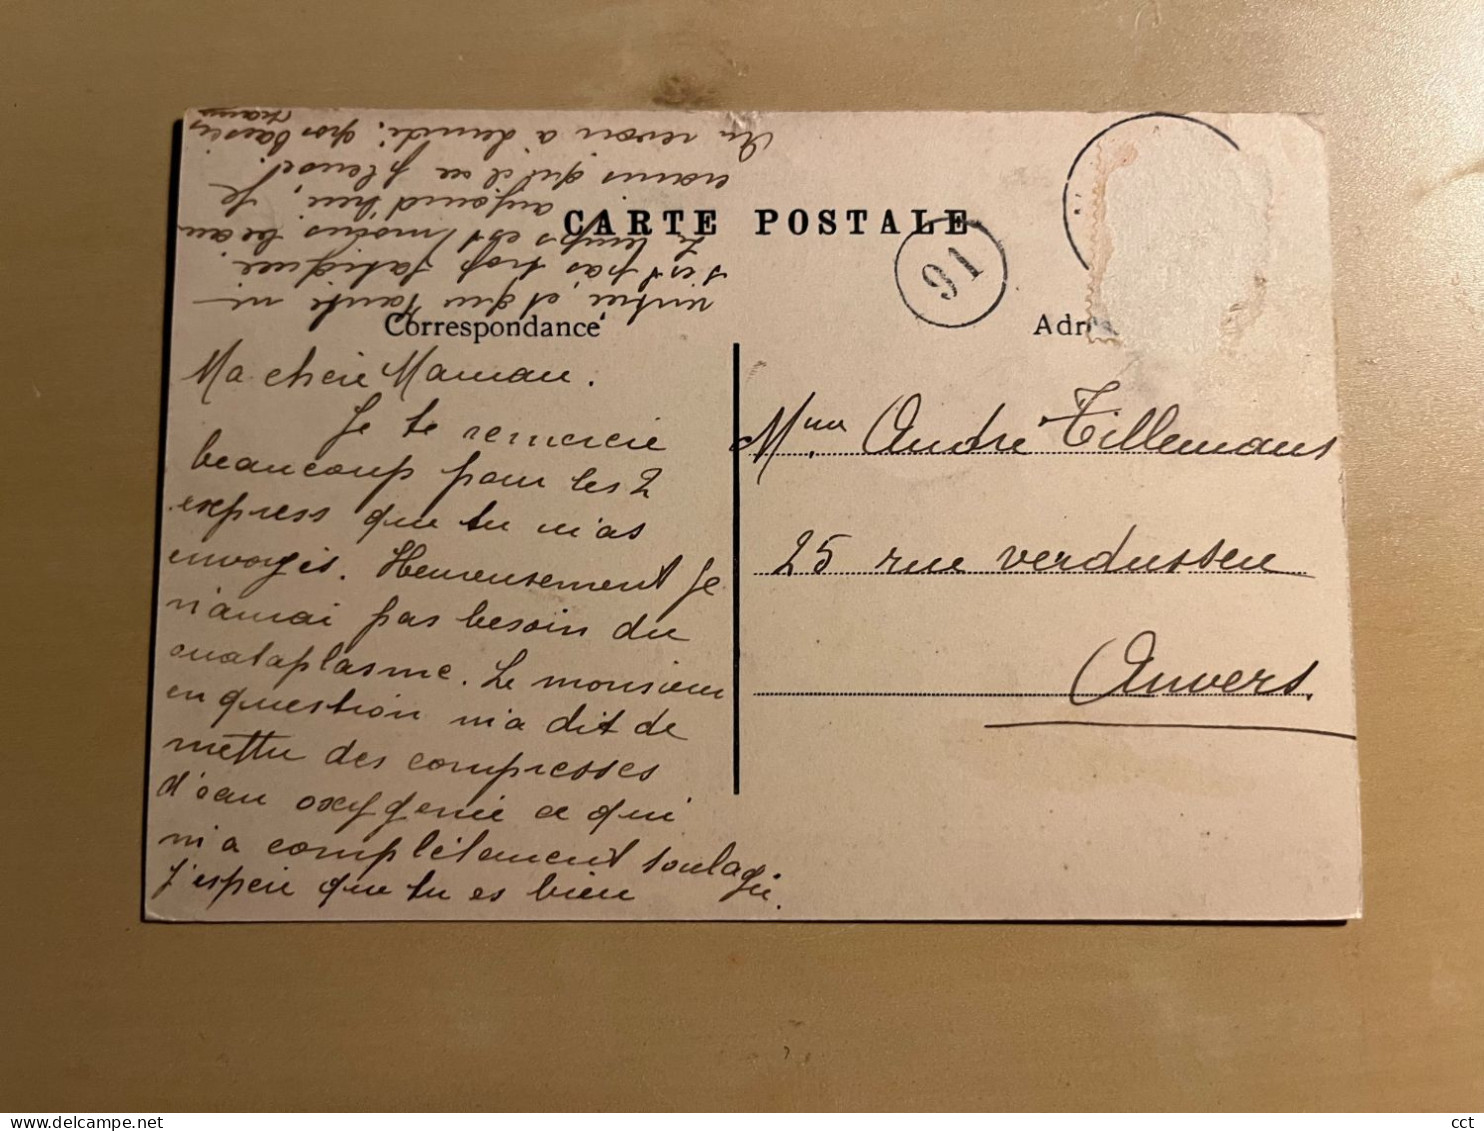 CARTE POSTALE
91
Correspondance
Adres
Ma chere Maman.
Je te remercie
beaucoup pour les 2
express que tu m'as
envoyés. Heureusement Je
n'aurai pas besoin du
cataplasme. Le monsieur
en question m'a dit de
mettre des compresses
d'eau oxygenée ce qui
m'a complètement soulagée.
J'espere que tu es bien
rentrée, et que Tante ni
s'est pas trop fatiguée.
Le temps est moins beau
aujourd'hui, Je
crains qu'il ne pleuve.
Au revoir à lundi, gros baisers
Mme André Tillemans
25 rue Verdussen
Anvers.
cct